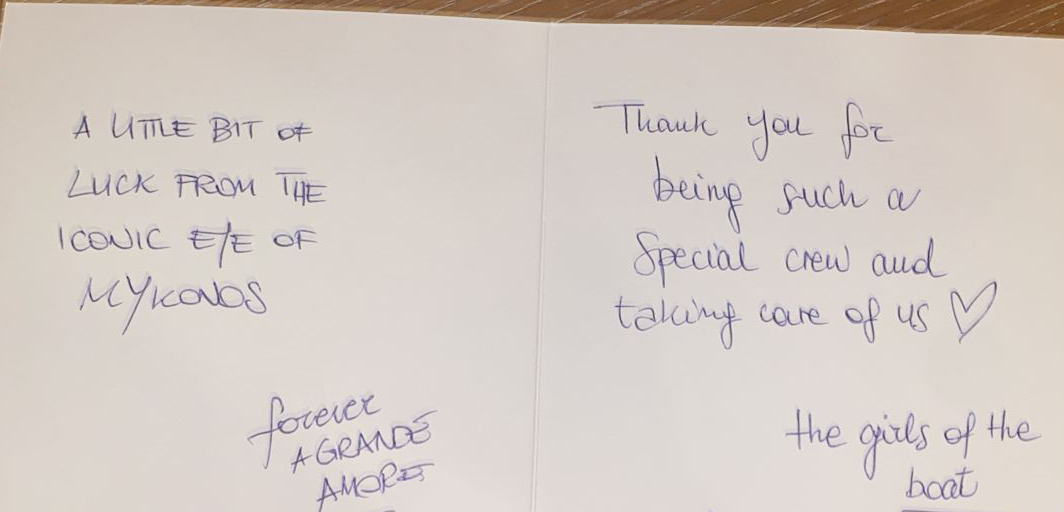 A LITTLE BIT OF
LUCK FROM THE
ICONIC EYE OF
MYKONOS
forever
A GRANDE
AMORE
Thank you for
being such a
Special crew and
taking care of us ♡
the girls of the
boat